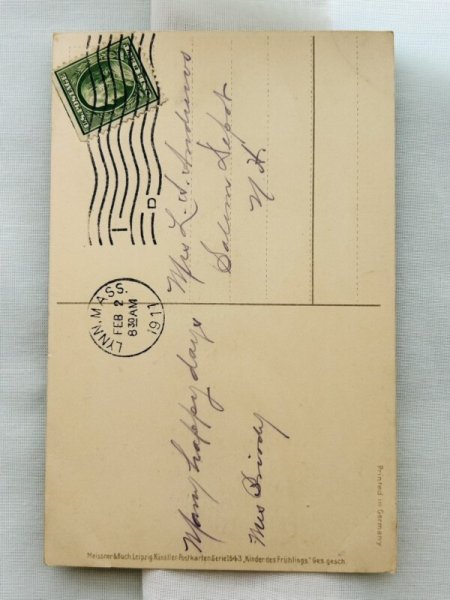 LYNN, MASS.
FEB 2
8 30 AM
1911
D
Many happy days
Mrs
Mrs L. A. Andrews
Salem Depot
N. H.
Meissner & Buch, Leipzig. Künstler-Postkarten Serie 1543 "Kinder des Frühlings." Ges. gesch.
Printed in Germany